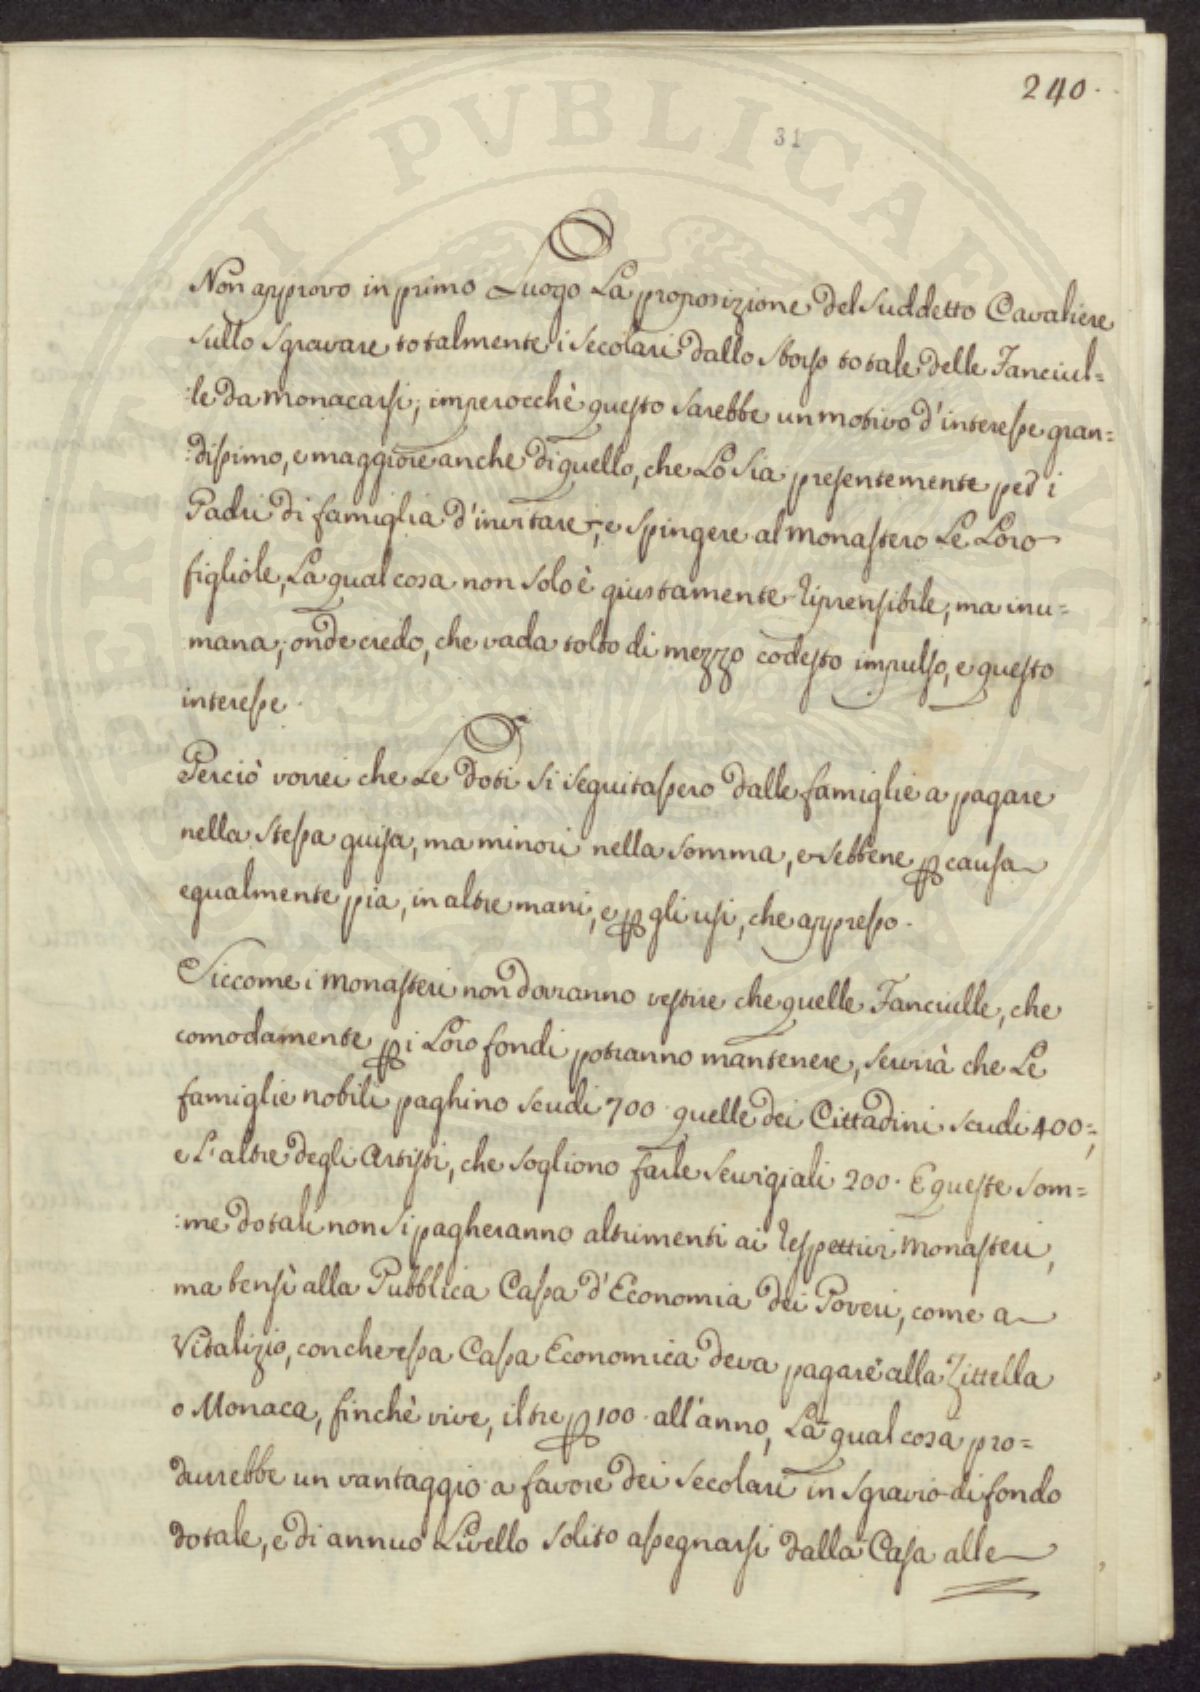 240.
31
Non approvo in primo Luogo La proposizione del Suddetto Cavaliere
sullo sgravare totalmente i Secolari dallo sborso totale delle Fanciul=
:le da monacarsi; imperocchè questo sarebbe un motivo d'interesse gran=
:dissimo, e maggiore anche di quello, che Lo Sia presentemente per i
Padri di famiglia d'invitare, e spingere al monastero Le Loro
figliole, La qual cosa non solo è giustamente riprensibile, ma inu=
mana; onde credo, che vada tolto di mezzo codesto impulso, e questo
interesse.
Perciò vorrei che Le doti si seguitassero dalle famiglie a pagare
nella stessa guisa, ma minori nella somma, e sebbene p causa
egualmente pia, in altre mani, e p gli usi, che appresso.
Siccome i monasteri non dovranno vestire che quelle Fanciulle, che
comodamente p i Loro fondi potranno mantenere, servirà che Le
famiglie nobili paghino scudi 700. quelle dei Cittadini scudi 400=,
e L'altre degli Artisti, che sogliono farle servigiali 200. E queste som=
:me dotali non si pagheranno altrimenti ai respettivi monasteri,
ma bensì alla Pubblica Cassa d'Economia dei Poveri, come a
Vitalizio, con che essa Cassa Economica deva pagare alla Zittella
o Monaca, finchè vive, il tre p 100. all'anno, La qual cosa pro=
durrebbe un vantaggio a favore dei secolari in sgravio di fondo
dotale, e di annuo Livello solito assegnarsi dalla Casa alle
PERUSINAE PUBLICAE